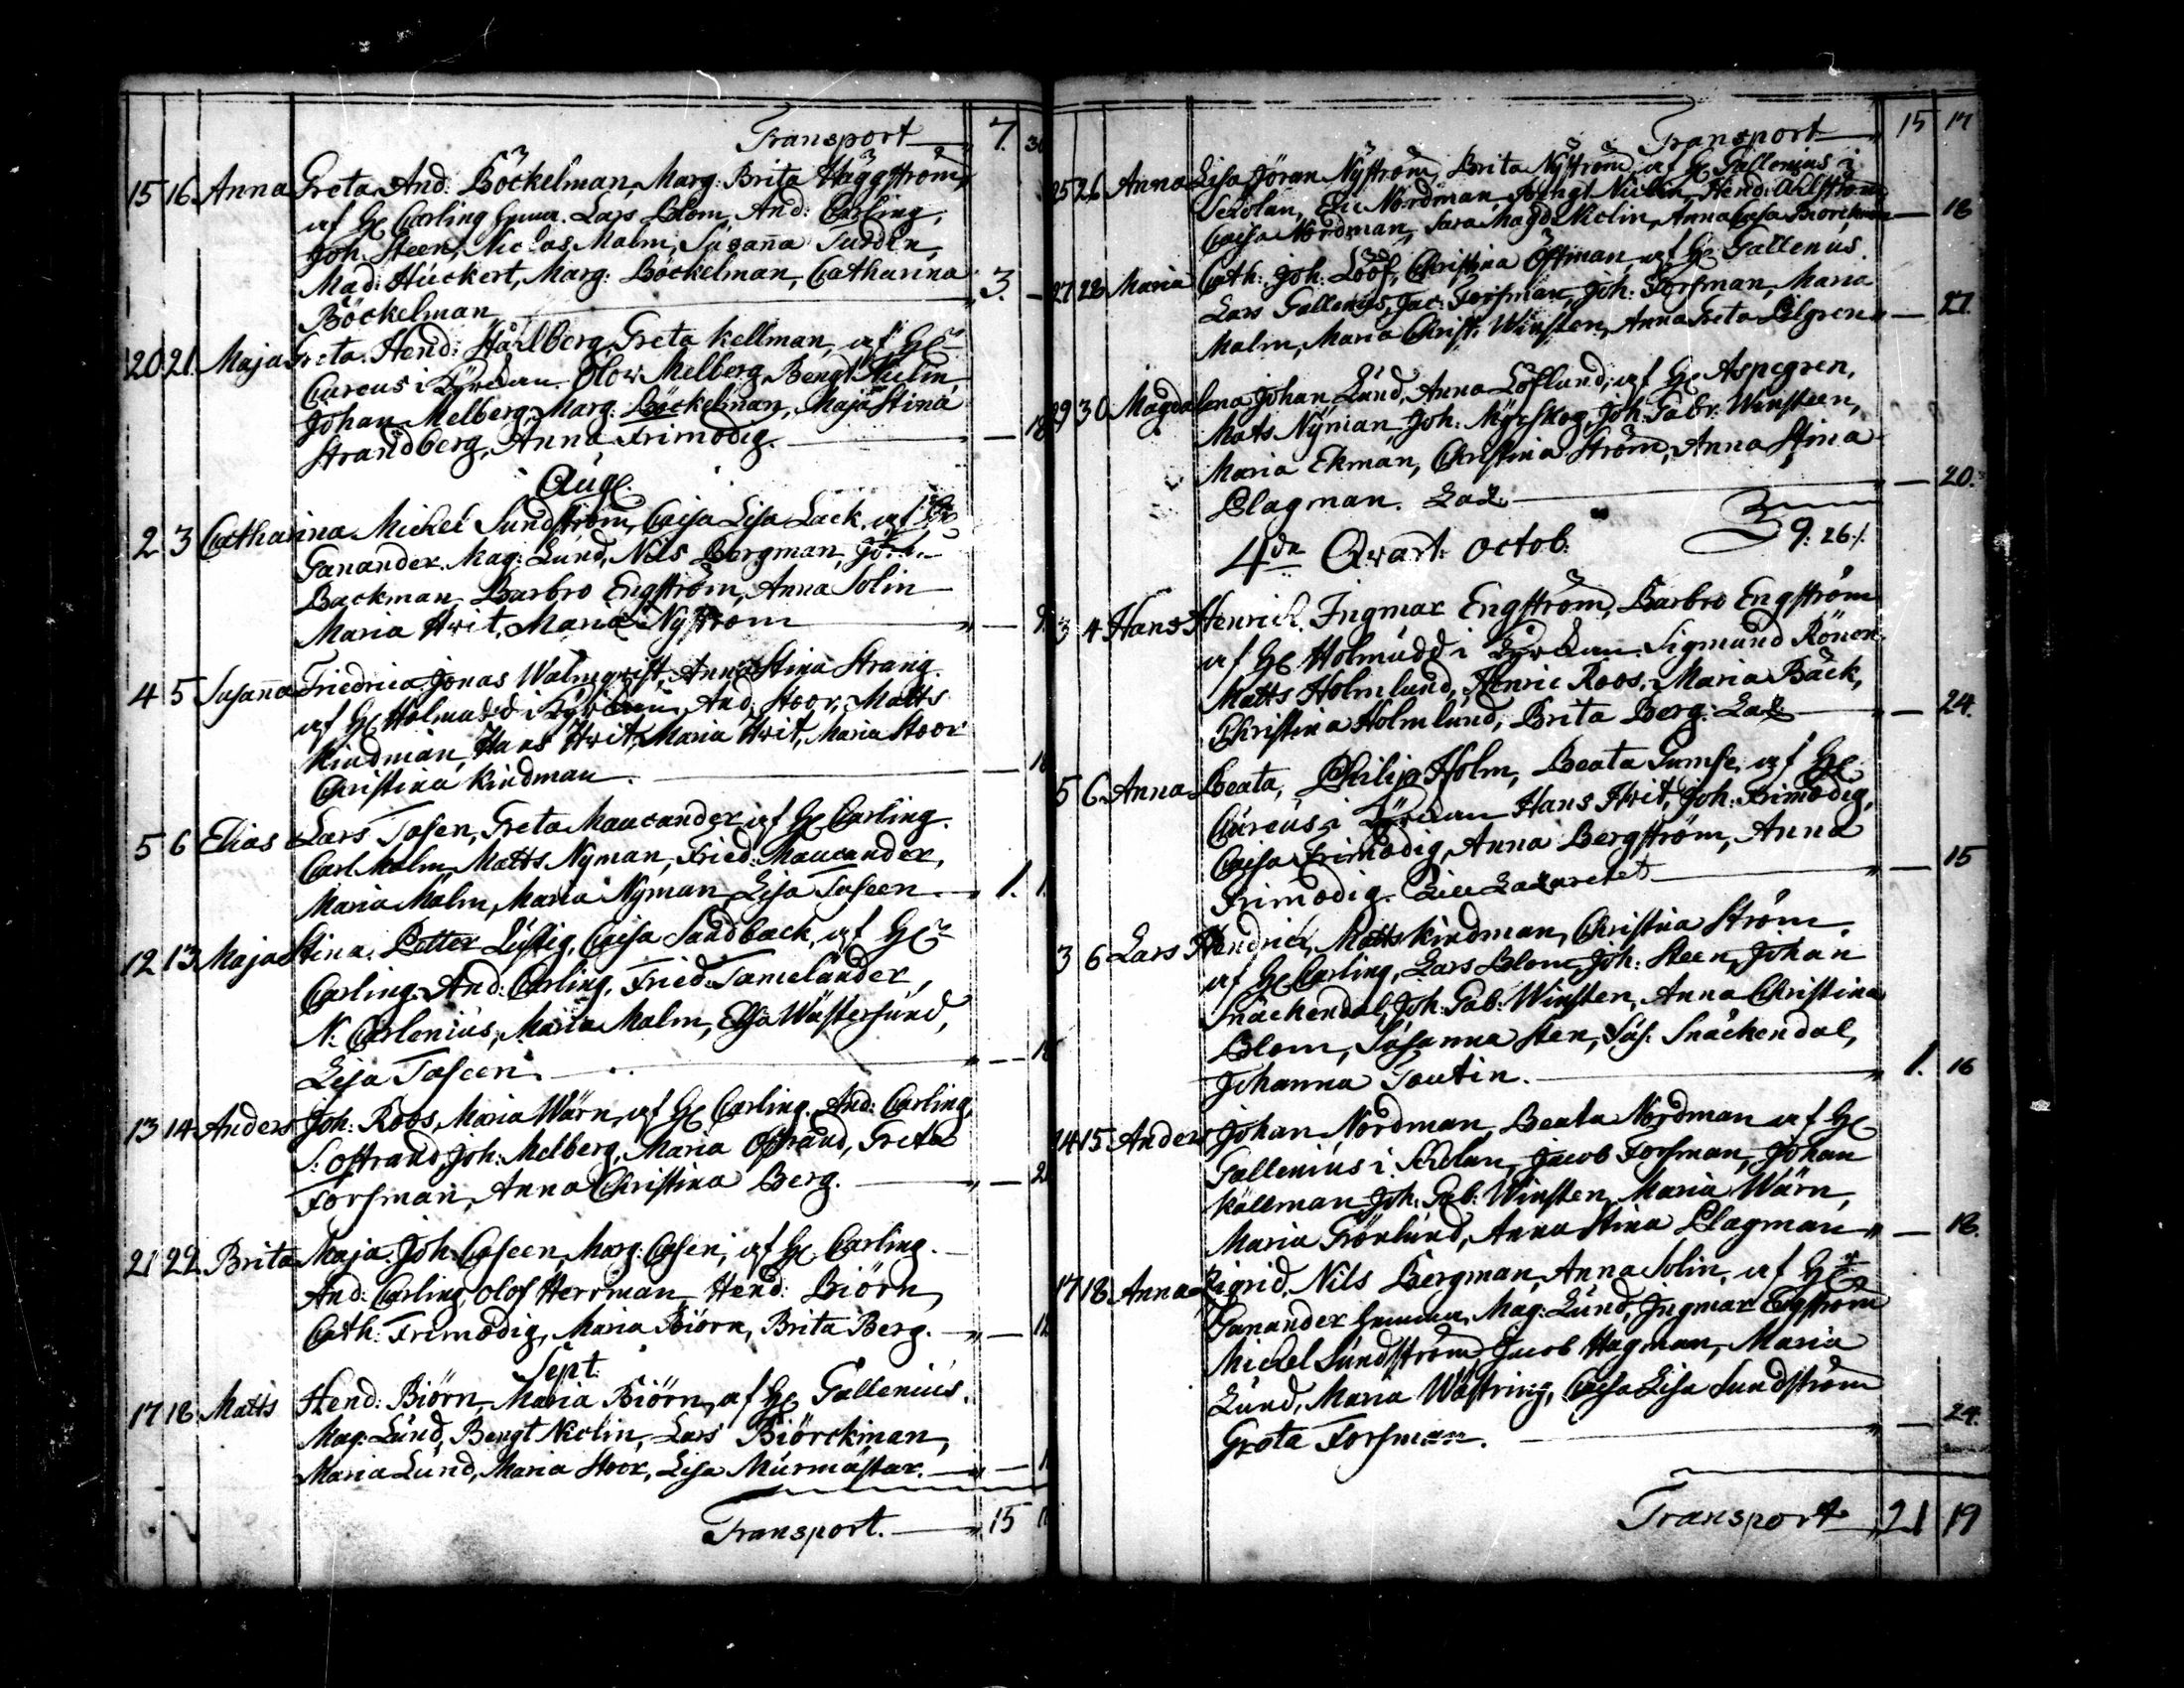 Transport 7. 30
15 16 Anna Greta. And: Böckelman, Marg: Brita Häggström,
af H: Carling hemma. Lars Blom, And: Carling,
Joh. Steen, Niclas Malm, Susaña Juddén,
Mad: Huckert, Marg: Böckelman, Catharina
Böckelman 3. —
20 21 Maja Greta. Hend: Ståhlberg, Greta Kellman, af H:
Cureus i Kyrckan. Olow Melberg, Bengt
Johan Melberg, Marg: Böckelman, Maja Stina
Strandberg, Anna Frimodig. — 18
Aug.
2 3 Catharina Michel Sundström, Caisa Lisa Lack, af H:
Ganander. Mag: Lund, Nils Bergman,
Backman Barbro Engström, Anna Solin
Maria Hvit, Maria Nyström —
4 5 Susaña Friedrica. Jonas Walmqvist, Anna Stina Strang.
af H: Holmudd i Kyrckan. And: Stoor, Matts
Kindman, Hans Hvit, Maria Hvit, Maria Stoor
Christina Kindman. —
5 6 Elias Lars Tasen, Greta Maucander af H: Carling.
Carl Malm, Matts Nyman, Fried: Maucander,
Maria Malm, Maria Nyman, Lisa Taseen. 1.
12 13 Maja Stina. Petter Lustig, Caisa Sandback, af H:
Carling. And: Carling, Fried: Tamelander,
N: Carlenius, Maria Malm, Elsa Wästersund,
Lisa Taseen. —
13 14 Anders Joh: Roos, Maria Wärn, af H: Carling. And: Carling,
S: Ostrand, Joh: Melberg, Maria Ostrand, Greta
Forsman, Anna Christina Berg. —
21 22 Brita Maja. Joh: Caseen, Marg: Casen, af H: Carling.
And: Carling, Olof Herrman, Hend: Biörn,
Cath: Frimodig, Maria Biörn, Brita Berg. —
Sept:
17 18 Matts Hend: Biörn, Maria Biörn, af H: Gallenius.
Mag: Lund, Bengt Niclin, Lars Biörckman,
Maria Lund, Maria Stoor, Lisa Murmästar. —
Transport. 15
Transport 15 17
25 26 Anna Lisa, Jöran Nyström, Brita Nyström, af H: Gallenius i
Scholan, Eric Nordman, Bengt Niclin, Hend: Ahlström,
Caisa Nordman, Sara Magd: Niclin, Anna Caisa Biörckman — 18
27 28 Maria Cath: Joh: Lööf, Christina Öffman, af H: Gallenius.
Lars Gallenius, Jac: Forsman, Joh: Forsman, Maria
Malm, Maria Christ: Winsten, Anna Greta Pilgren — 27.
29 30 Magdalena Johan Lund, Anna Löflund, af H: Aspegren,
Mats Nyman, Joh: Myrskog, Joh: Gabr: Winsteen,
Maria Ekman, Christina Ström, Anna Stina
Plagman. Laz: — 20.
9: 26/.
4da Qvart: Octob:
3 4 Hans Henrich. Ingmar Engström, Barbro Engström
af H: Holmudd i Kyrckan. Sigmund Rönen,
Matts Holmlund, Henric Roos, Maria Bäck,
Christina Holmlund, Brita Berg. Laz: — 24.
5 6 Anna Beata, Philip Holm, Beata Sumse, af H:
Cureus i Kyrckan Hans Hvit, Joh: Frimodig,
Caisa Frimodig, Anna Bergström, Anna
Frimodig. Lazaretet — 15
3 6 Lars Hendrich, Matts Kindman, Christina Ström.
af H: Carling, Lars Blom, Joh: Steen, Johan
Snäckendal, Joh: Gab: Winsten, Anna Christina
Blom, Susanna Sten, Sus: Snäckendal,
Johanna Toutin. 1. 16
14 15 Anders Johan Nordman, Beata Nordman af H:
Gallenius i Scholan, Jacob Forsman, Johan
Källman, Joh: Gab: Winsten, Maria Wärn,
Maria Grönlund, Anna Stina Plagman — 18.
17 18 Anna Sigrid. Nils Bergman, Anna Solin, af H:
Ganander hemma, Mag: Lund, Ingmar Engström
Michel Sundström, Jacob Hagman, Maria
Lund, Maria Wästring, Caisa Lisa Sundström
Greta Forsman. — 24.
Transport 21 19